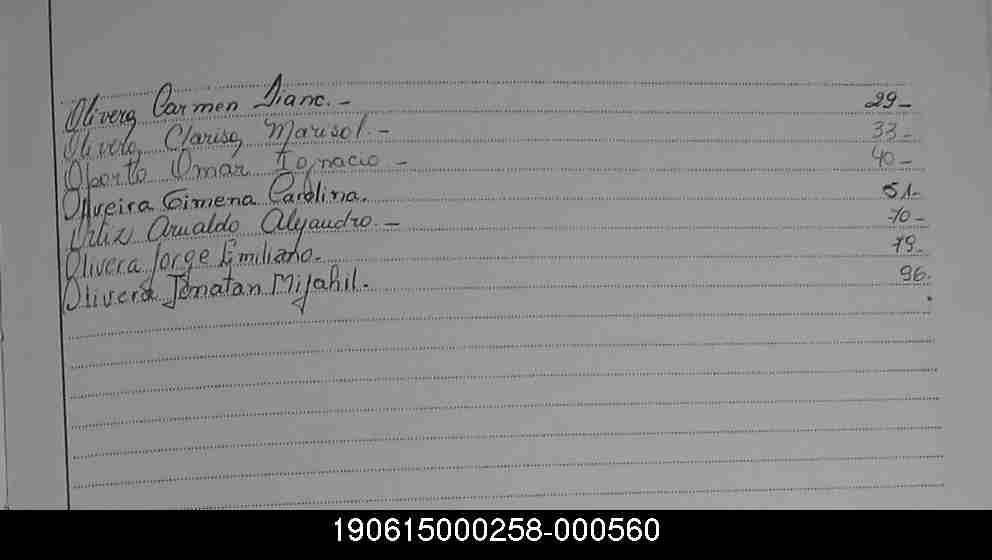 Olivera Carmen Dianc. - 29-
Olivera, Clarisa Marisol. - 33-
Oporto Omar Ignacio - 40-
Oliveira Gimena Carolina. 51-
Ortiz Arnaldo Alejandro. - 70-
Olivera Jorge Emiliano. 79-
Olivera Jonatan Mijahil. 96.
190615000258-000560